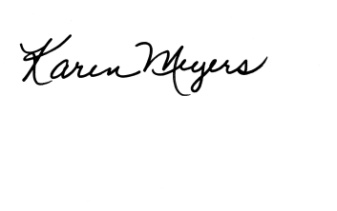 Karen Meyers